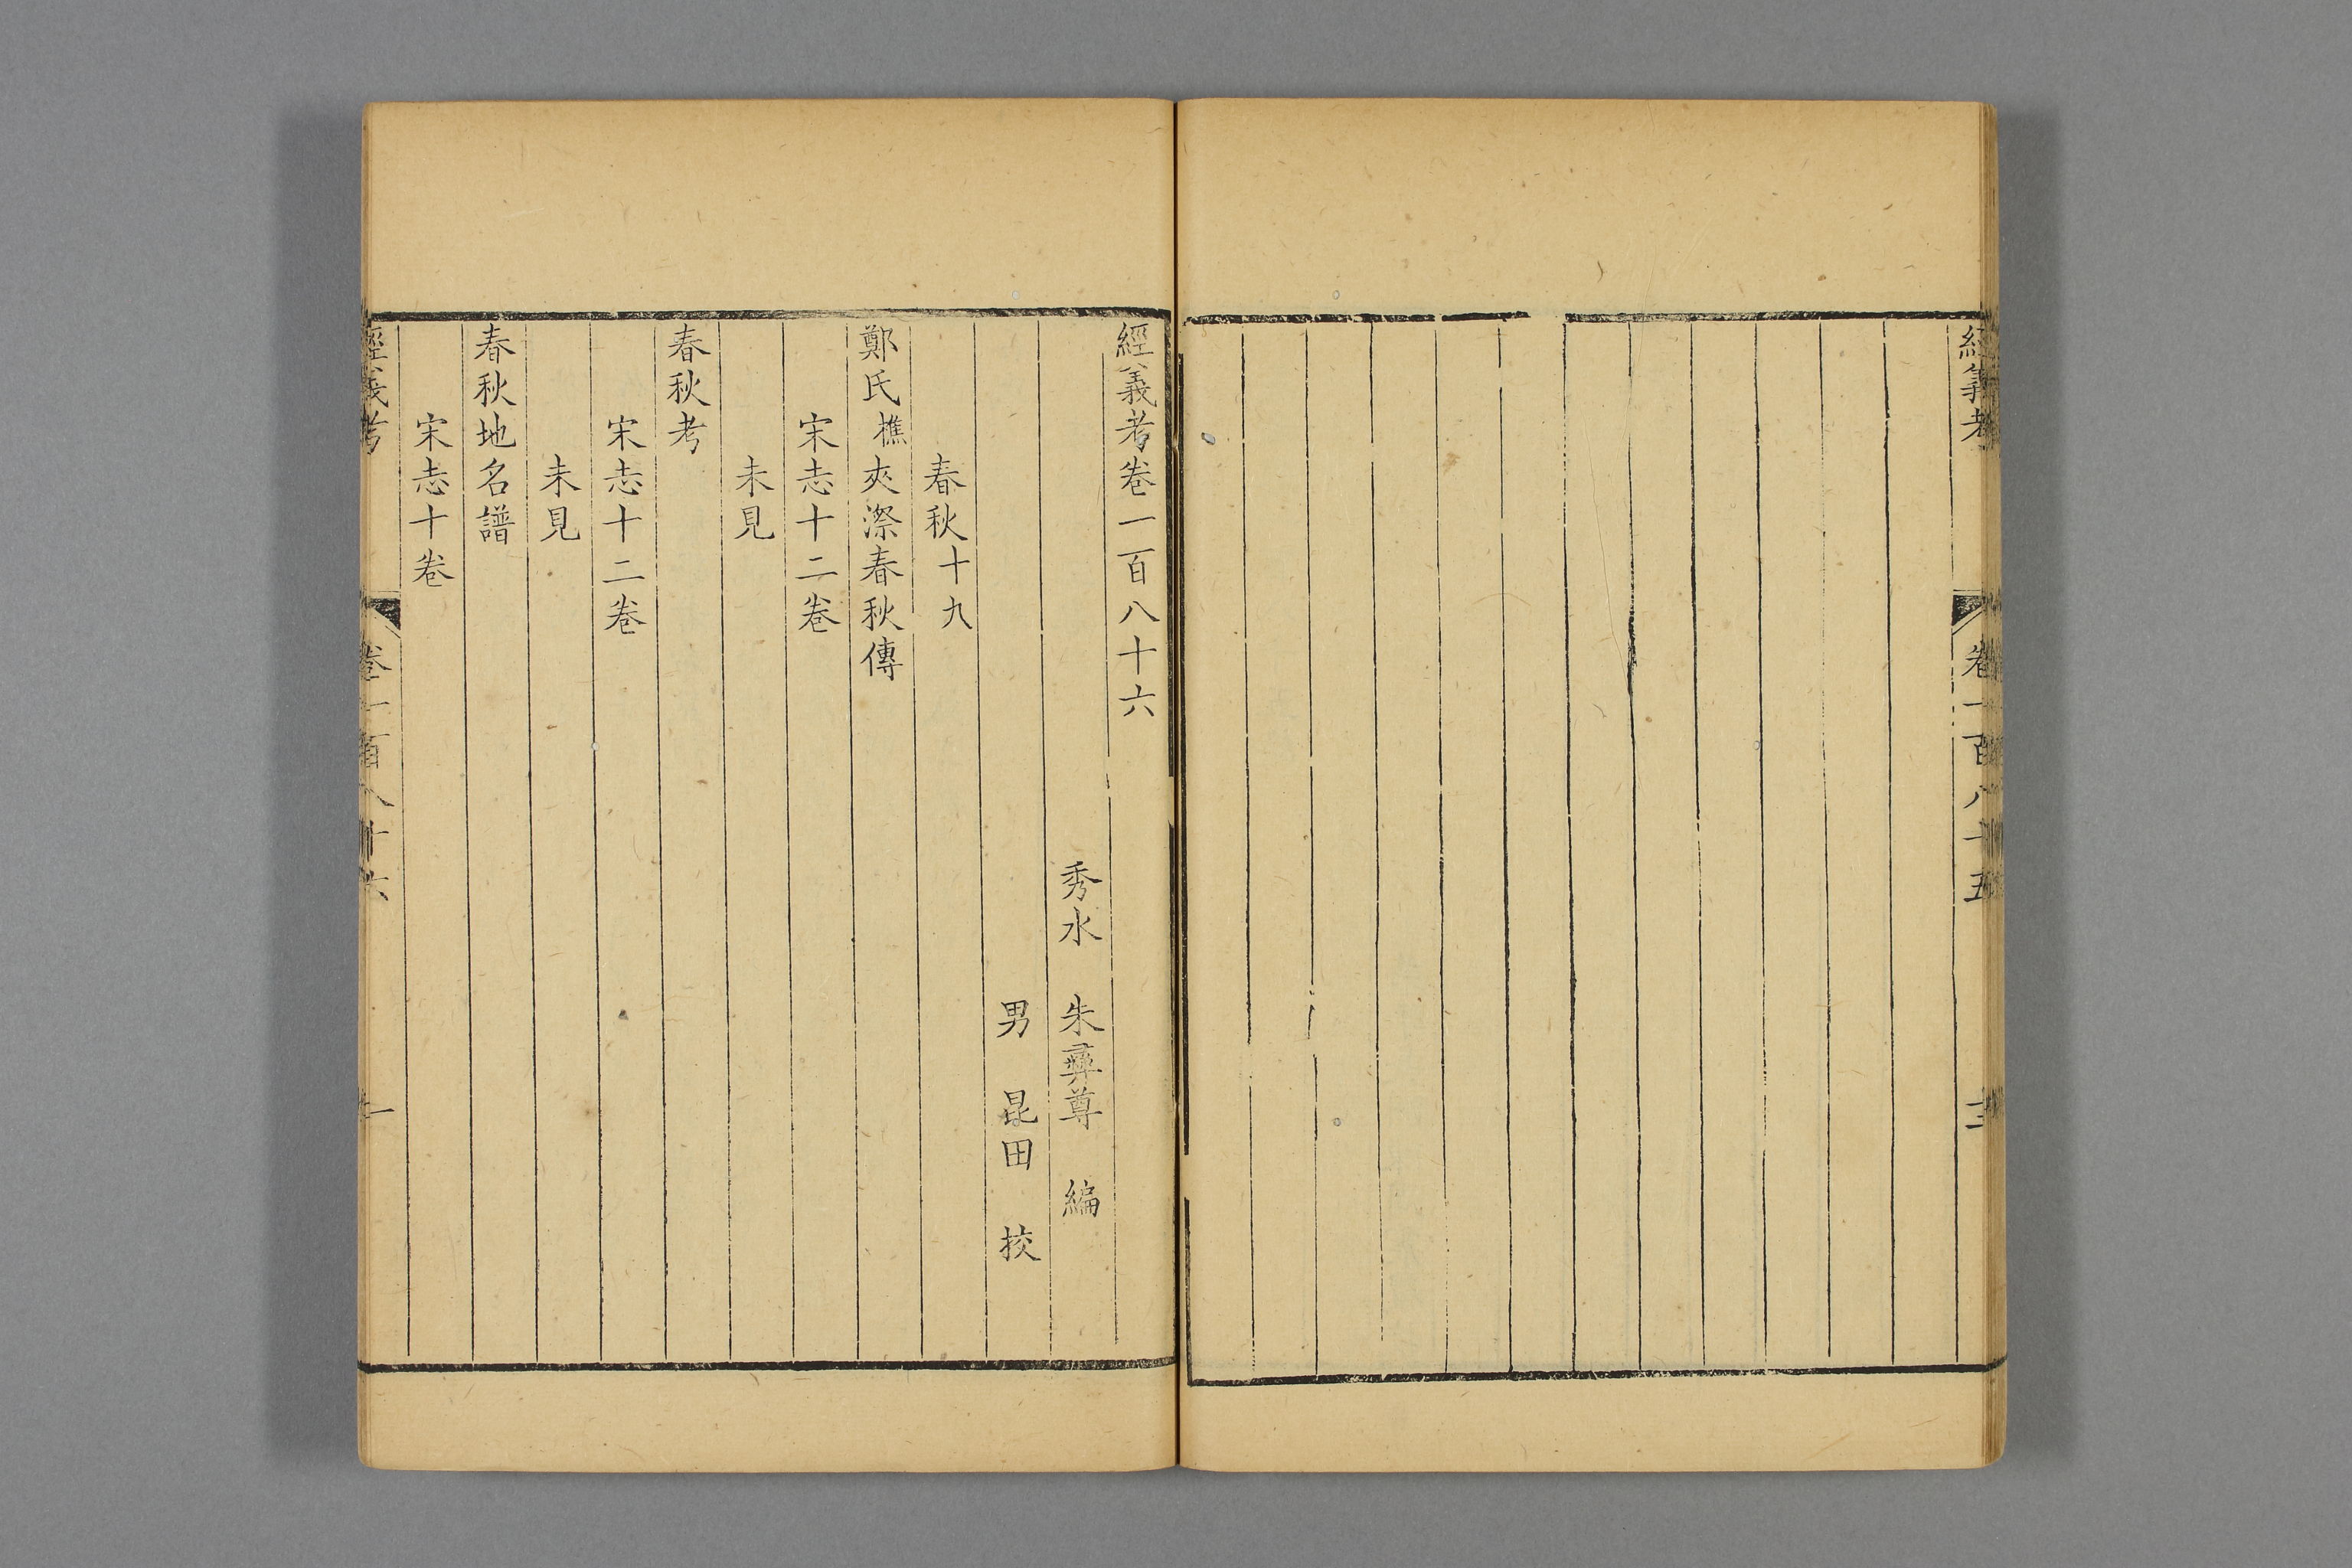 經義考
卷一百八十五
十二
經義考卷一百八十六
秀水　朱彛尊　編
男　昆田　挍
春秋十九
鄭氏樵夾漈春秋傳
宋志十二卷
未見
春秋考
宋志十二卷
未見
春秋地名譜
宋志十卷
經義考
卷一百八十六
一